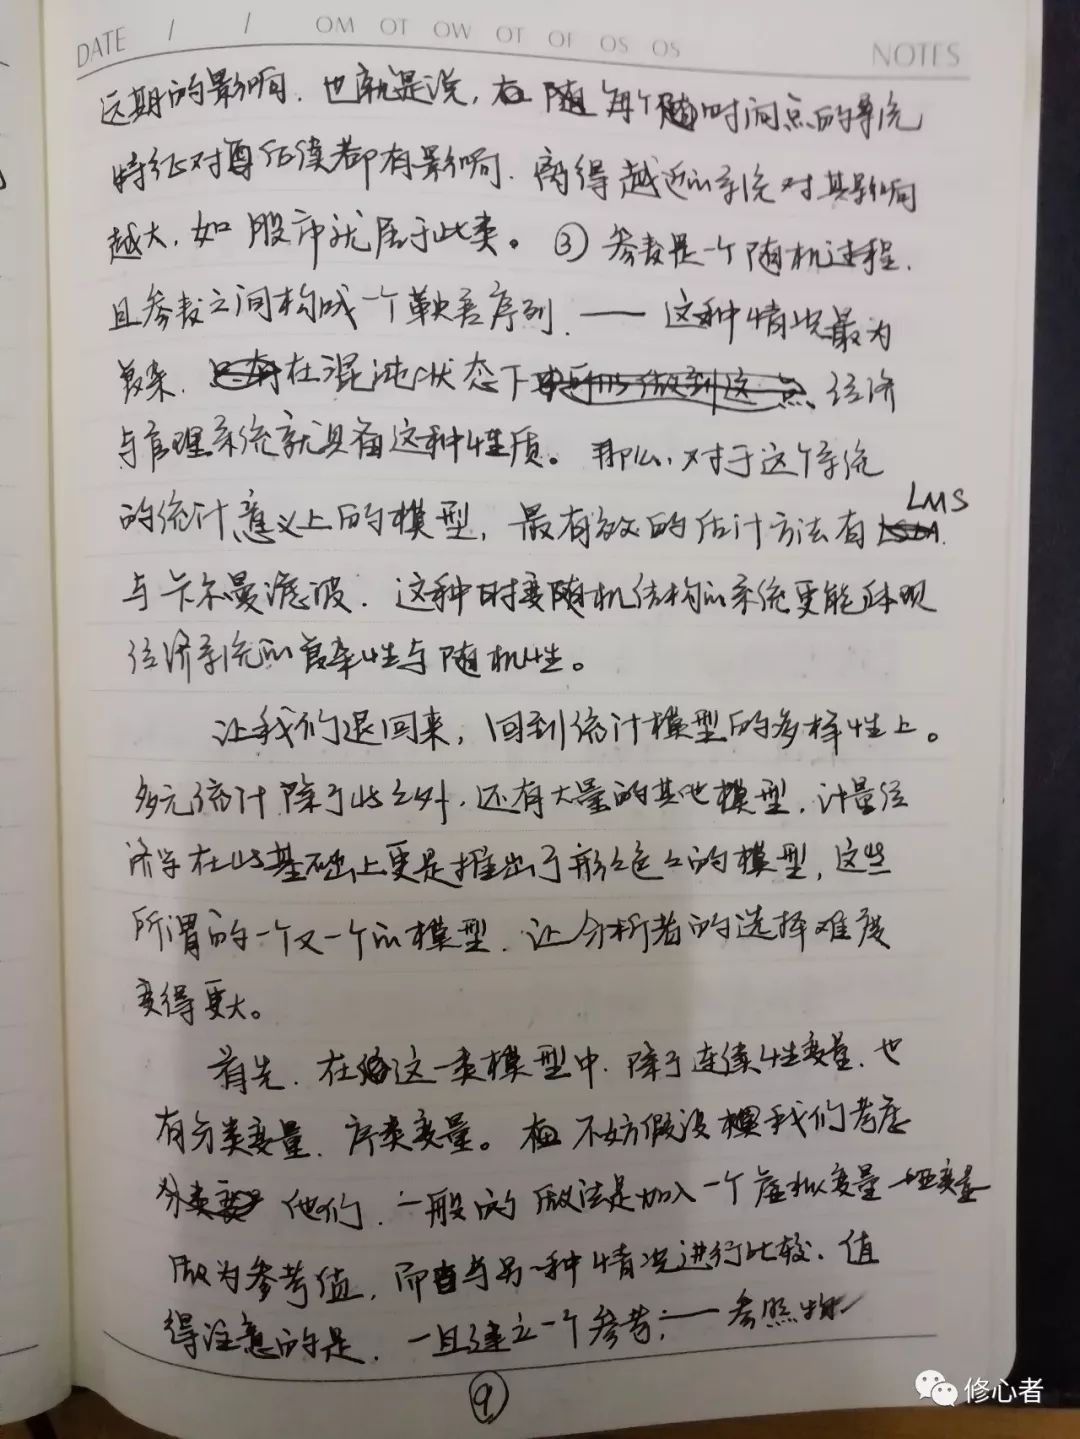 DATE / / OM OT OW OT OF OS OS NOTES
远期的影响. 也就是说, 每个时间点的系统
特征对 后续都有影响. 离得越近的系统对其影响
越大, 如股市就属于此类。③ 参数是一个随机过程.
且参数之间构成一个鞅差序列. —— 这种情况最为
复杂. 在混沌状态下 经济
与管理系统就具备这种性质。那么, 对于这个系统
LMS
的统计意义上的模型, 最有效的估计方法有
与卡尔曼滤波. 这种时变随机结构的系统更能体现
经济系统的复杂性与随机性。
让我们退回来, 回到统计模型的多样性上。
多元统计除了此之外, 还有大量的其他模型. 计量经
济学在此基础上更是推出了形形色色的模型, 这些
所谓的一个又一个的模型. 让分析者的选择难度
变得更大。
首先. 在这一类模型中. 除了连续性变量. 也
有分类变量. 序类变量。不妨假设我们考虑
他们. 一般的做法是加入一个虚拟变量 哑变量
做为参考值, 而与另一种情况进行比较. 值
得注意的是, 一旦建立一个参考 —— 参照物
9
修心者